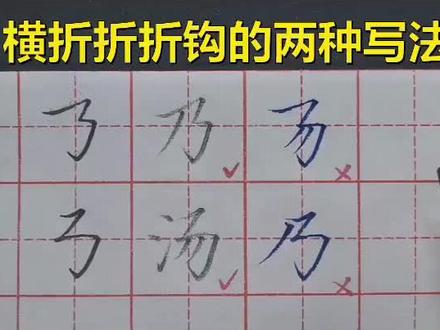 横折折折钩的两种写法
㇡ 乃 㐆
㇡ 汤 乃